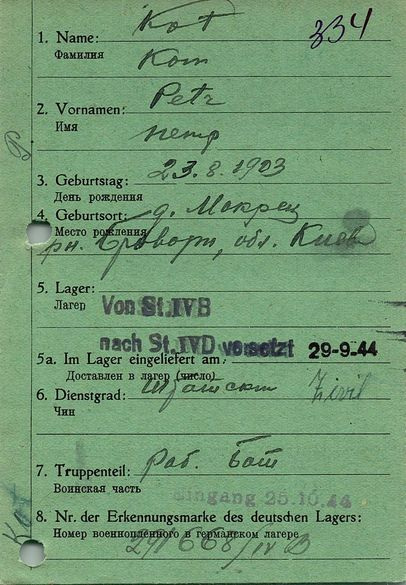 334
1. Name: Kot
Фамилия Кот
2. Vornamen: Petr
Имя Петр
3. Geburtstag: 23.8.1903
День рождения
4. Geburtsort: д. Мокрец
Место рождения
рн. Бровары, обл. Киев
5. Lager:
Лагер
Von St.IVB
nach St.IVD versetzt 29-9-44
5a. Im Lager eingeliefert am:
Доставлен в лагер (число)
6. Dienstgrad: Zivil
Чин
7. Truppenteil: раб. Бат
Воинская часть
Eingang 25.10.44
8. Nr. der Erkennungsmarke des deutschen Lagers:
Номер военнопленного в германском лагере
291668/IV B
Kot